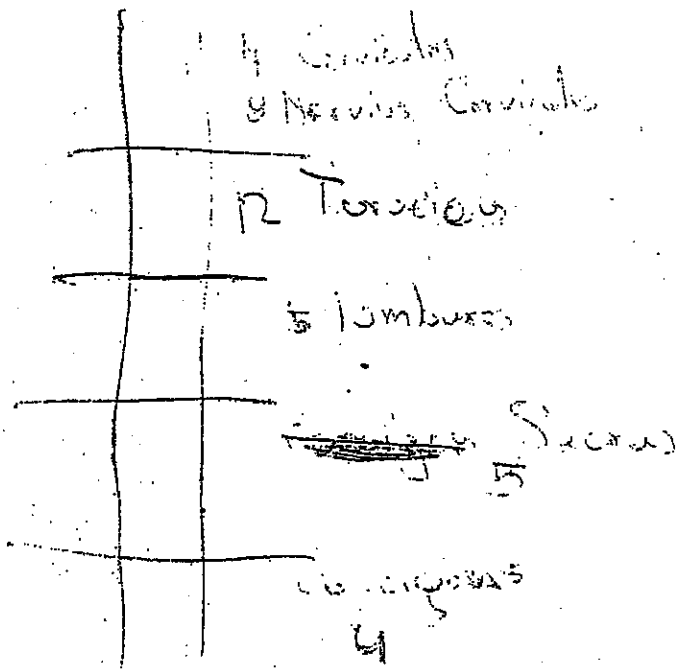 Cervicales
8 Nervios Cervicales
12 Toracicas
5 lumbares
Sacras
5
4